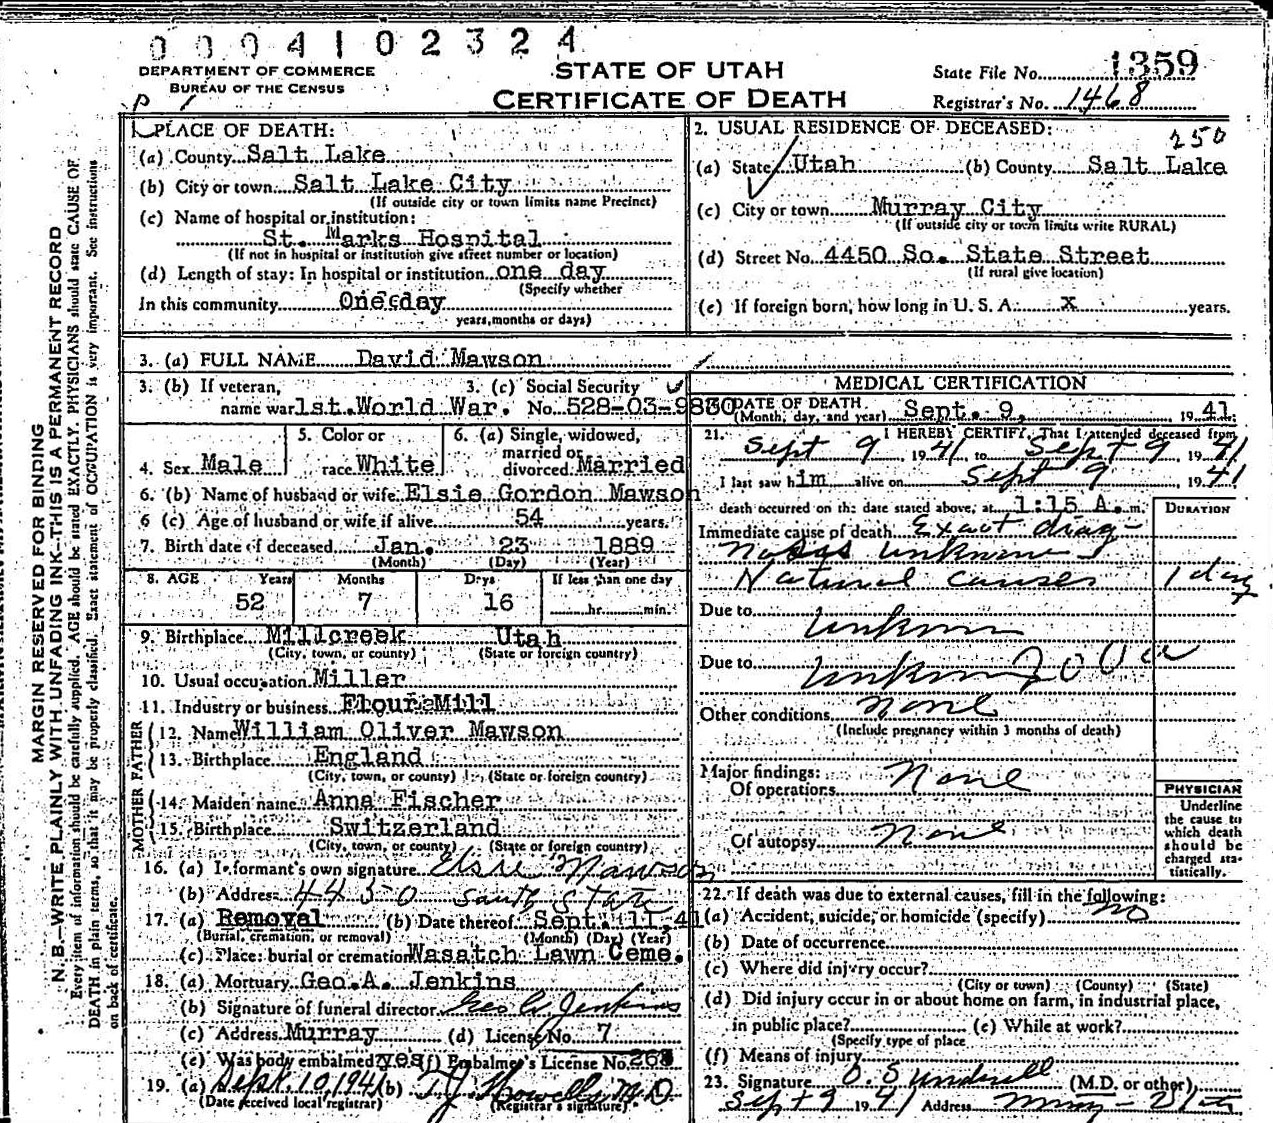 0004102324
DEPARTMENT OF COMMERCE
BUREAU OF THE CENSUS
STATE OF UTAH
CERTIFICATE OF DEATH
State File No. 1359
Registrar's No. 1468
MARGIN RESERVED FOR BINDING
N. B.—WRITE PLAINLY WITH UNFADING INK—THIS IS A PERMANENT RECORD
Every item of information should be carefully supplied. AGE should be stated EXACTLY. PHYSICIANS should state CAUSE OF
DEATH in plain terms, so that it may be properly classified. Exact statement of OCCUPATION is very important. See instructions
on back of certificate.
1. PLACE OF DEATH:
(a) County Salt Lake
(b) City or town Salt Lake City
(If outside city or town limits name Precinct)
(c) Name of hospital or institution:
St. Marks Hospital
(If not in hospital or institution give street number or location)
(d) Length of stay: In hospital or institution one day
(Specify whether
In this community One day
years, months or days)
2. USUAL RESIDENCE OF DECEASED:
250
(a) State Utah (b) County Salt Lake
(c) City or town Murray City
(If outside city or town limits write RURAL)
(d) Street No. 4450 So. State Street
(If rural give location)
(e) If foreign born, how long in U. S. A. x years.
3. (a) FULL NAME David Mawson
3. (b) If veteran, 3. (c) Social Security
name war 1st. World War. No. 528-03-9830
4. Sex Male
5. Color or
race White
6. (a) Single, widowed,
married or
divorced Married
6. (b) Name of husband or wife Elsie Gordon Mawson
6 (c) Age of husband or wife if alive 54 years.
7. Birth date of deceased Jan. 23 1889
(Month) (Day) (Year)
8. AGE Years Months Days If less than one day
52 7 16 hr. min.
9. Birthplace Millcreek Utah
(City, town, or county) (State or foreign country)
10. Usual occupation Miller
11. Industry or business Flour Mill
FATHER
12. Name William Oliver Mawson
13. Birthplace England
(City, town, or county) (State or foreign country)
MOTHER
14. Maiden name Anna Fischer
15. Birthplace Switzerland
(City, town, or county) (State or foreign country)
16. (a) Informant's own signature Elsie Mawson
(b) Address 4450 South State
17. (a) Removal (b) Date thereof Sept. 11, 41
(Burial, cremation, or removal) (Month) (Day) (Year)
(c) Place: burial or cremation Wasatch Lawn Ceme.
18. (a) Mortuary Geo. A. Jenkins
(b) Signature of funeral director Geo A Jenkins
(c) Address Murray (d) License No. 7
(e) Was body embalmed yes (f) Embalmer's License No. 268
19. (a) Sept. 10, 1941 (b) T. J. Howells, M.D.
(Date received local registrar) (Registrar's signature)
MEDICAL CERTIFICATION
20. DATE OF DEATH
(Month, day, and year) Sept. 9, 1941
21. I HEREBY CERTIFY, That I attended deceased from
Sept 9, 1941 to Sept 9, 1941
I last saw him alive on Sept 9 1941
death occurred on the date stated above, at 1:15 A. m.
DURATION
Immediate cause of death Exact diag-
nosis unknown
Natural causes 1 day
Due to Unknown
Due to Unknown 200a
Other conditions None
(Include pregnancy within 3 months of death)
Major findings:
Of operations None
Of autopsy None
PHYSICIAN
Underline
the cause to
which death
should be
charged sta-
tistically.
22. If death was due to external causes, fill in the following:
(a) Accident, suicide, or homicide (specify) no
(b) Date of occurrence
(c) Where did injury occur?
(City or town) (County) (State)
(d) Did injury occur in or about home on farm, in industrial place,
in public place? (e) While at work?
(Specify type of place
(f) Means of injury
23. Signature (M.D. or other)
Sept 9 1941 Address Murray - Utah